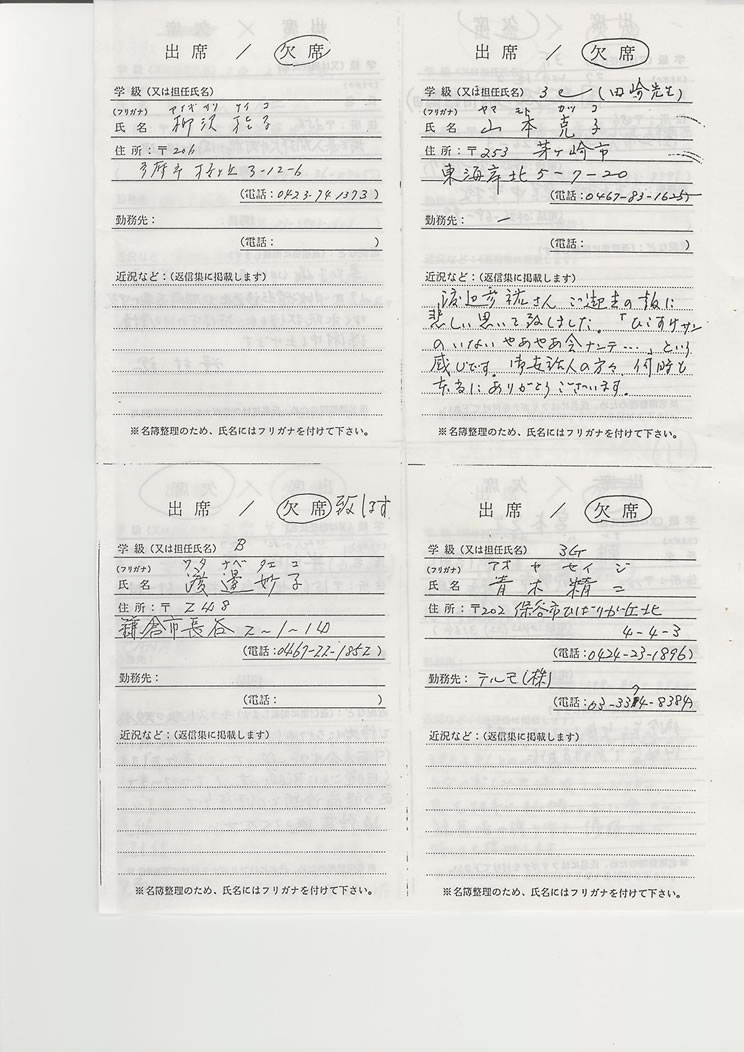 出席 / 欠席
学級(又は担任氏名)
(フリガナ) ヤナギサワ ケイコ
氏名 柳沢 子
住所:〒206
多摩市 桜ヶ丘 3-12-6
(電話:0423-74-1373)
勤務先:
(電話: )
近況など:(返信集に掲載します)
※名簿整理のため、氏名にはフリガナを付けて下さい。
出席 / 欠席
学級(又は担任氏名) 3e (田崎先生)
(フリガナ) ヤマ モト カツ コ
氏名 山本 克子
住所:〒253 茅ヶ崎市
東海岸北 5-7-20
(電話:0467-83-1625)
勤務先: -
(電話: )
近況など:(返信集に掲載します)
渡辺彦 さん ご逝去の報に
悲しい思いを致しました。「ひこすけサン
のいないやあやあ会ナンテ…」という
感じです。 人の方々、何時も
本当にありがとうございます。
※名簿整理のため、氏名にはフリガナを付けて下さい。
出席 / 欠席 致します
学級(又は担任氏名) B
(フリガナ) ワタ ナベ タエ コ
氏名 渡邊妙子
住所:〒248
鎌倉市長谷 2-1-14
(電話:0467-22-1852)
勤務先:
(電話: )
近況など:(返信集に掲載します)
※名簿整理のため、氏名にはフリガナを付けて下さい。
出席 / 欠席
学級(又は担任氏名) 3G
(フリガナ) アオ ヤ セイ ジ
氏名 青木 精二
住所:〒202 保谷市ひばりが丘北
4-4-3
(電話:0424-23-1896)
勤務先:テルモ(株)
(電話:03-3374-8384)
近況など:(返信集に掲載します)
※名簿整理のため、氏名にはフリガナを付けて下さい。